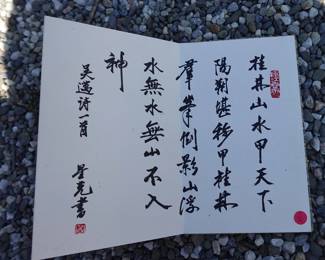 桂林山水甲天下
陽朔堪稱甲桂林
羣峯倒影山浮
水無水無山不入
神
吳邁詩一首